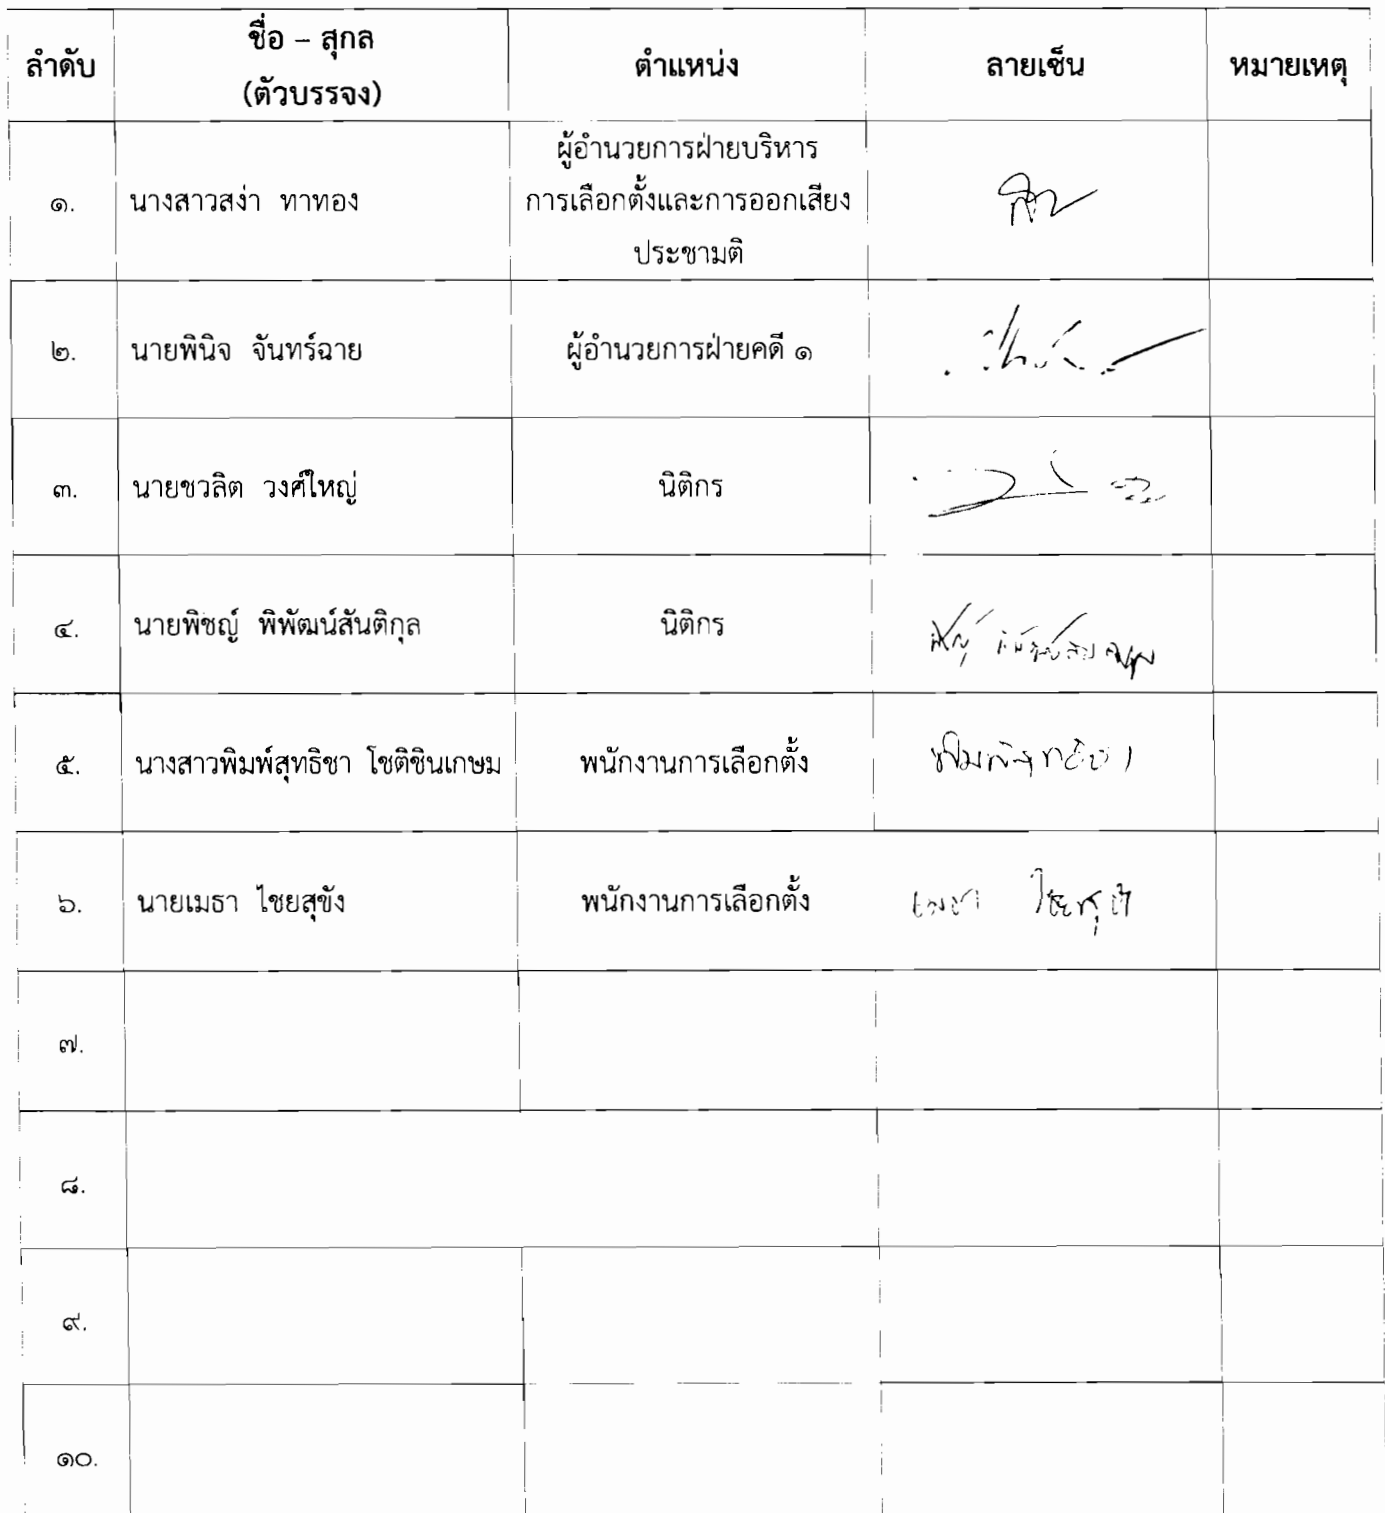 ลำดับ ชื่อ – สุกล (ตัวบรรจง) ตำแหน่ง ลายเซ็น หมายเหตุ
๑. นางสาวสง่า ทาทอง ผู้อำนวยการฝ่ายบริหาร
การเลือกตั้งและการออกเสียง
ประชามติ
๒. นายพินิจ จันทร์ฉาย ผู้อำนวยการฝ่ายคดี ๑
๓. นายชวลิต วงศ์ใหญ่ นิติกร
๔. นายพิชญ์ พิพัฒน์สันติกุล นิติกร
๕. นางสาวพิมพ์สุทธิชา โชติชินเกษม พนักงานการเลือกตั้ง
๖. นายเมธา ไชยสุขัง พนักงานการเลือกตั้ง
๗.
๘.
๙.
๑๐.